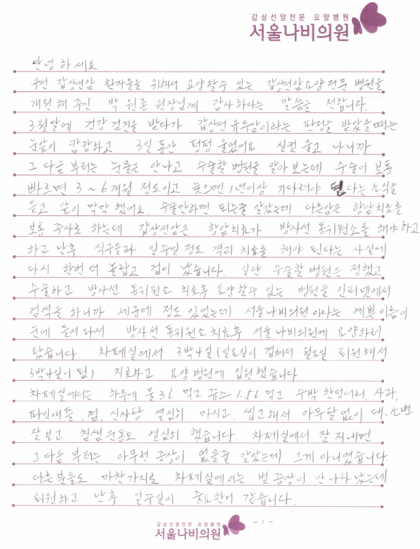 갑상선암전문 요양병원
서울나비의원
안녕하세요.
우선 갑상선암 환자들을 위해서 요양할수 있는 갑상선암요양전문 병원을
개원해 주신 박 원장님께 감사하다는 말씀을 전합니다.
3월말에 건강검진을 받다가 갑상선유두암이라는 판정을 받았을때는
눈앞이 깜깜하고 3일 동안 펑펑 울었어요. 실컷 울고 나니까
그 다음 부터는 눈물은 안나고 수술할 병원을 알아보는데 수술이 보통
빠르면 3~6개월 정도이고 늦으면 1년이상 기다려야 된다는 소식을
듣고 앞이 막막했어요. 수술만하면 되는줄 알았는데 다른암은 항암치료를
보통 주사로 하는데 갑상선암은 항암치료가 방사선 동위원소를 해야 하고
하고 난후 식구들과 일주일정도 격리 치료를 해야 된다는 사실에
다시 한번 더 놀랍고 겁이 났습니다. 일단 수술할 병원은 정했고
수술하고 방사선 동위원소 치료후 요양할수 있는 병원을 인터넷에서
검색을 하니까 세군데 정도 있었는데 서울나비의원이라는 예쁜이름이
눈에 들어와서 방사선 동위원소 치료후 서울나비의원에 요양하러
왔습니다. 차폐실에서 3박4일(일요일이 겹쳐서 월요일 퇴원해서
3박4일이 됨) 치료하고 요양병원에 입원했습니다
차폐실에서는 하루에 물 3L 먹고 쥬스 1.5L 먹고 수박 한덩어리, 사과,
파인애플, 껌, 신사탕 열심히 마시고, 씹고해서 아무탈없이 대·소변
잘보고 침샘운동도 열심히 했습니다. 차폐실에서 잘 지내면
그다음 부터는 아무런 증상이 없을줄 알았는데 그게 아니였습니다.
다른분들도 마찬가지로 차폐실에서는 별 증상이 안나타났는데
퇴원하고 난후 일주일이 중요한거 같습니다.
-1-
갑상선암전문 요양병원
서울나비의원